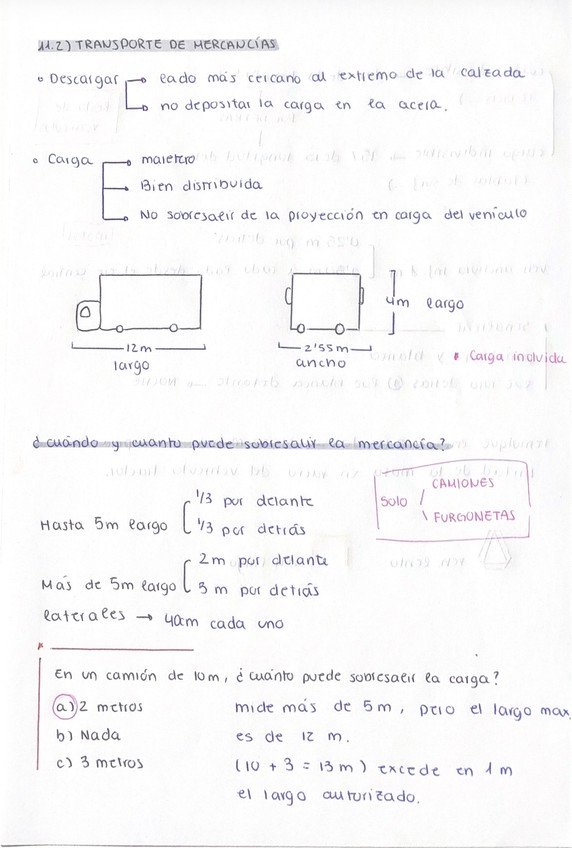 11.2) TRANSPORTE DE MERCANCÍAS
Descargar → lado más cercano al extremo de la calzada
→ no depositar la carga en la acera.
Carga → maletero
→ Bien distribuida
→ No sobresalir de la proyección en carga del vehículo
4m largo
12m
largo
2'55m
ancho
* Carga incluida
¿cuándo y cuanto puede sobresalir la mercancía?
Solo / CAMIONES
\ FURGONETAS
Hasta 5m largo [ 1/3 por delante
1/3 por detrás
Más de 5m largo [ 2m por delante
3m por detrás
laterales → 40cm cada uno
*
En un camión de 10m, ¿cuánto puede sobresalir la carga?
a) 2 metros
b) Nada
c) 3 metros
mide más de 5m, pero el largo max.
es de 12 m.
(10 + 3 = 13m) excede en 1m
el largo autorizado.